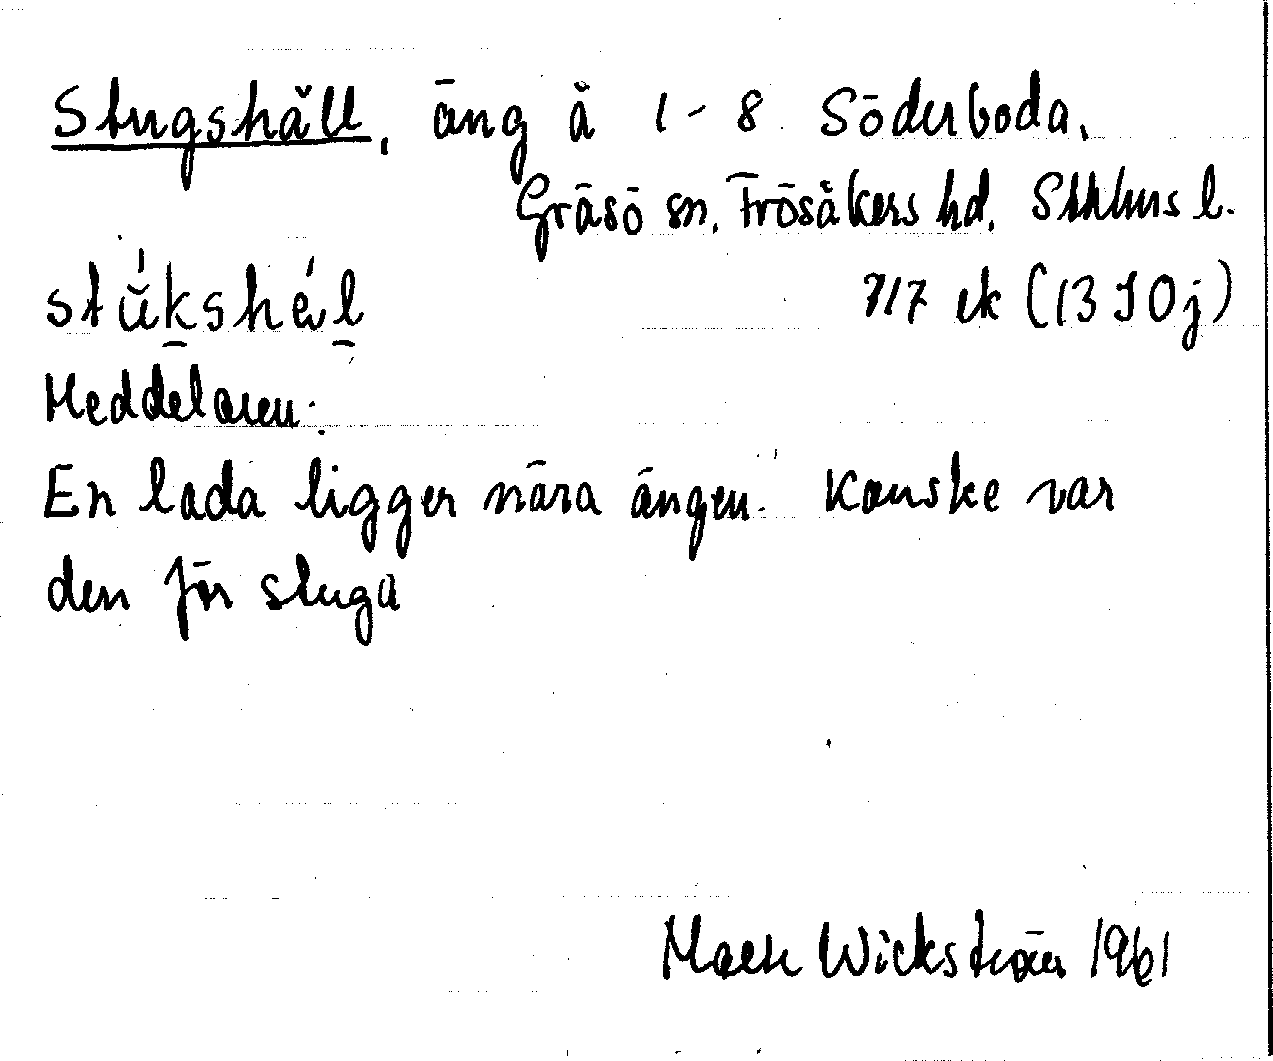 Stugshäll, äng å 1-8 Söderboda,
Gräsö sn, Frösåkers hd, Sthlms l.
717 ek (13 I 0j)
Meddelaren:
En lada ligger nära ängen. Kanske var
den för stuga
Wickström 1961